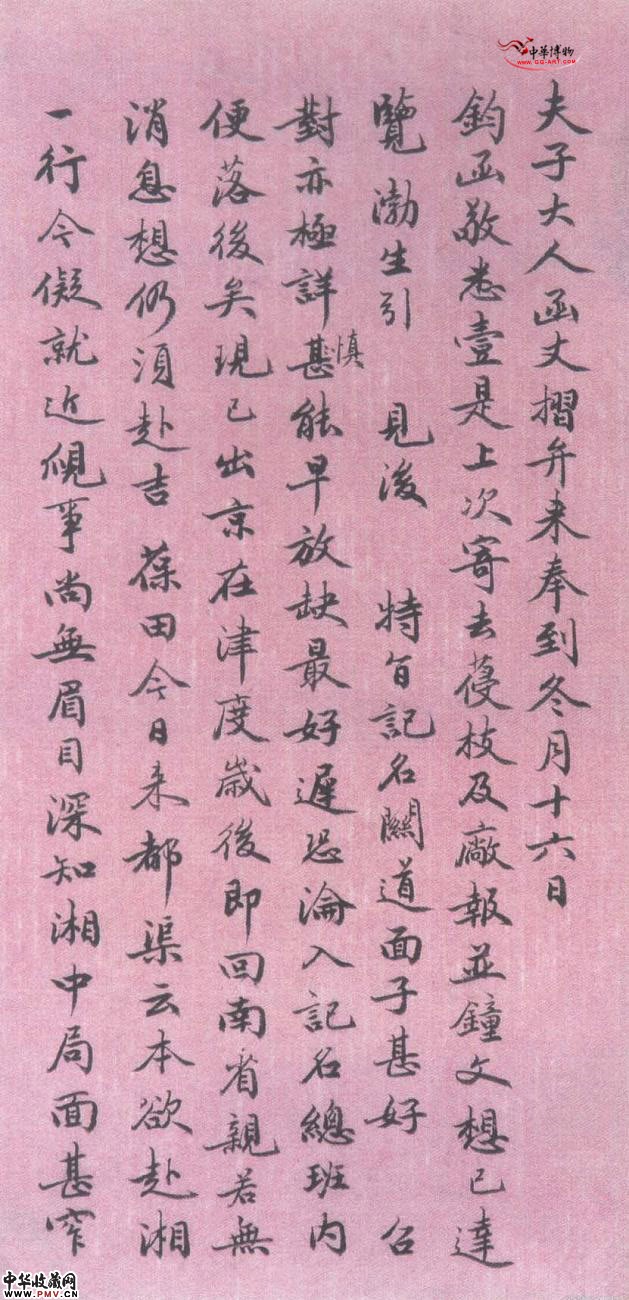 夫子大人函丈摺弁来奉到冬月十六日
鈞函敬悉壹是上次寄去葠枝及廠報並鐘文想已達
覽 渤生引 見後 特旨記名關道面子甚好 召
對亦極詳慎甚能早放缺最好遲恐淪入記名總班内
便落後矣現已出京在津度歲後即回南省親若無
消息想仍須赴吉 葆田今日来都渠云本欲赴湘
一行今儗就近覘事尚無眉目深知湘中局面甚窄
中華博物
WWW.GG-ART.COM
中华收藏网
WWW.PMV.CN